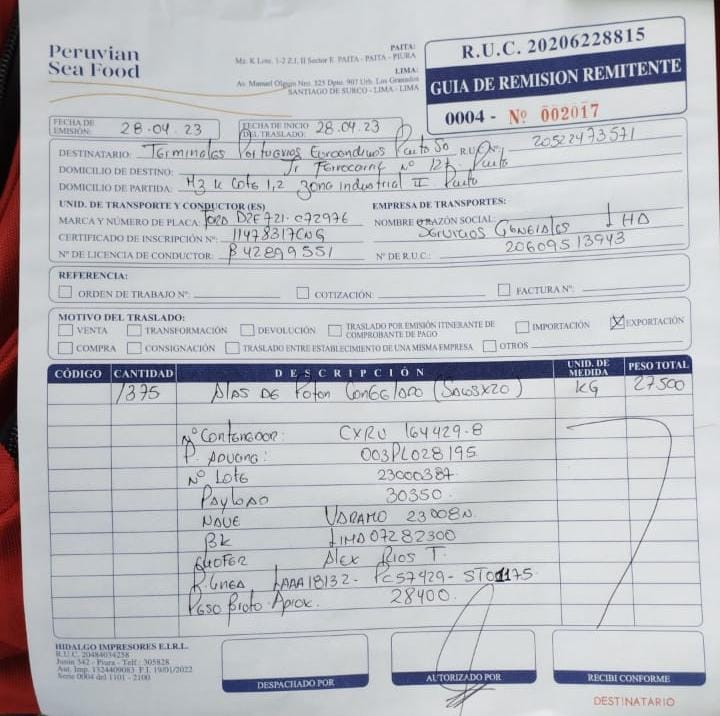 Peruvian
Sea Food
PAITA:
Mz. K Lote. 1-2 Z.I. II Sector E PAITA - PAITA - PIURA
LIMA:
Av. Manuel Olguin Nro. 325 Dpto. 907 Urb. Los Granados
SANTIAGO DE SURCO - LIMA - LIMA
R.U.C. 20206228815
GUIA DE REMISION REMITENTE
0004 - Nº 002017
FECHA DE EMISIÓN: 28.04.23
FECHA DE INICIO DEL TRASLADO: 28.04.23
DESTINATARIO: Terminales Portuarios Euroandinos Paita Sa R.U.C. Nº: 20522473571
DOMICILIO DE DESTINO: Jr Ferrocarril Nº 127 Paita
DOMICILIO DE PARTIDA: Mz K Lote 1,2 Zona Industrial II Paita
UNID. DE TRANSPORTE Y CONDUCTOR (ES)
MARCA Y NÚMERO DE PLACA: Ford D2E721-C72976
CERTIFICADO DE INSCRIPCIÓN Nº: 11478317CNG
Nº DE LICENCIA DE CONDUCTOR: B42899551
EMPRESA DE TRANSPORTES:
NOMBRE O RAZÓN SOCIAL: Servicios Generales JHD
Nº DE R.U.C.: 20609513943
REFERENCIA:
ORDEN DE TRABAJO Nº: COTIZACIÓN: FACTURA Nº:
MOTIVO DEL TRASLADO:
VENTA TRANSFORMACIÓN DEVOLUCIÓN TRASLADO POR EMISIÓN ITINERANTE DE COMPROBANTE DE PAGO IMPORTACIÓN EXPORTACIÓN
COMPRA CONSIGNACIÓN TRASLADO ENTRE ESTABLECIMIENTO DE UNA MISMA EMPRESA OTROS
CÓDIGO CANTIDAD DESCRIPCIÓN UNID. DE MEDIDA PESO TOTAL
1375 Alas de Poton Congelado (Sacosx20) KG 27500
Nº Contenedor: CXRU 164429-8
P. Aduana: 003PL028195
Nº Lote 23000387
Payload 30350.
Nave Varamo 23008N.
BK LIMA07282300
Chofer Alex Rios T.
P. Linea LAAA18132- PC57429- ST01175
Peso Bruto Aprox. 28400.
HIDALGO IMPRESORES E.I.R.L.
R.U.C. 20484034258
Junín 342 - Piura - Telf.: 305828
Aut. Imp. 1324409083 F.I. 19/01/2022
Serie 0004 del 1101 - 2100
DESPACHADO POR
AUTORIZADO POR
RECIBI CONFORME
DESTINATARIO